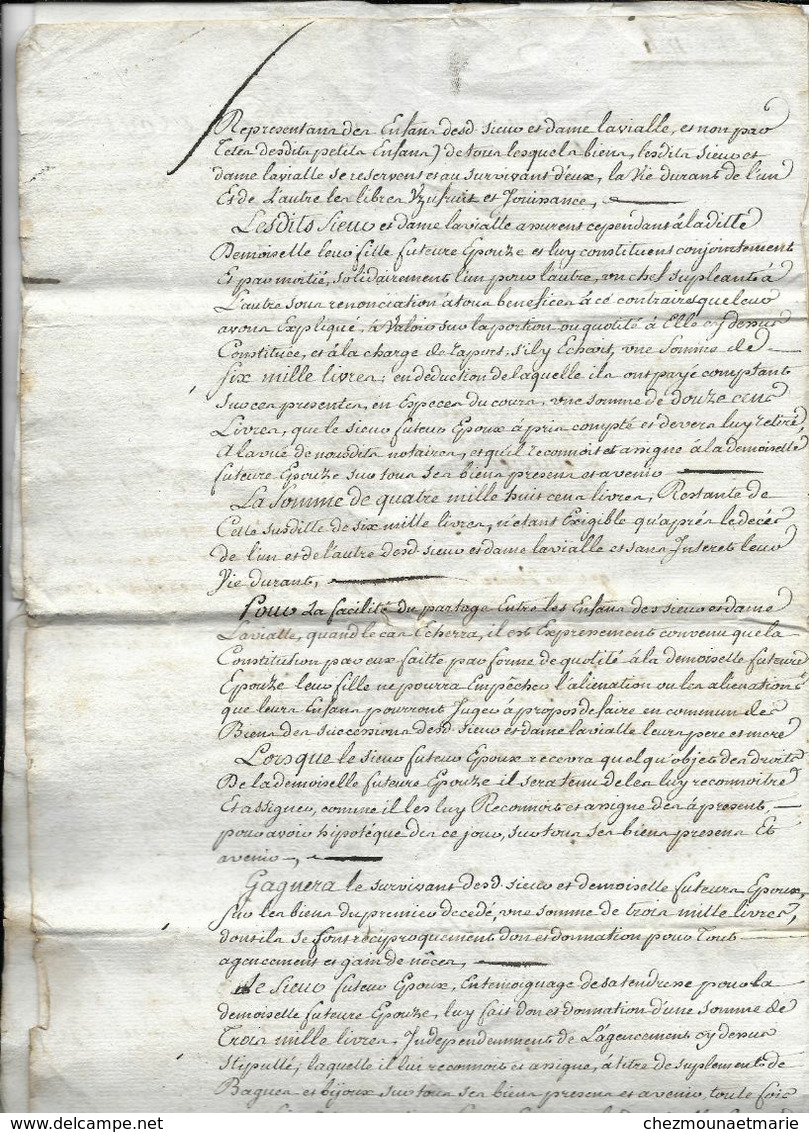 Representans des Enfans desd. sieur et dame lavialle, et non par
Tetes desdits petits Enfans) de tous lesquels biens, lesdits sieur et
dame lavialle se reservent et au survivant d'eux, la Vie durant de l'un
Et de L'autre les libres Vzufruit et Jouissance,
Lesdits Sieur et dame lavialle assurent cependant à laditte
Demoiselle leur fille future Epouze et luy constituent conjointement
Et par moitié, solidairement l'un pour l'autre, un chef supleant à
L'autre sous renonciation à tous benefices à cé contraires que leur
avons Expliqué, à Valoir sur la portion ou quotité à Elle cy dessus
Constituée, et à la charge de raport, s'il y Echoit, une Somme de
Six mille livres; en deduction de laquelle ils ont payé comptant
Sur ces presentes, en Especes du cours, une somme de douze cens
Livres, que le sieur futeur Epoux à pris compté et devers luy retiré
A la vüe de nousdits notaires, et qu'il reconnoit et assigne à la demoiselle
future Epouze sur tous ses biens presens et avenir
La Somme de quatre mille huit cens livres, Restante de
Celle susditte de six mille livres, n'étant Exigible qu'aprés le decés
de l'un et de l'autre desd. sieur et dame lavialle et sans Interet leur
Vie durant,
Pour La facilité du partage Entre les Enfans des sieur et dame
Lavialle, quand le cas Echerra, il est Expressement convenu que la
Constitution par eux faitte par forme de quotité à la demoiselle future
Epouze leur fille ne pourra Empêcher l'alienation ou les alienations
que leurs Enfans pourront Juger à propos de faire en commun des
Biens des successions desd. sieur et dame lavialle leurs pere et mere
Lorsque le sieur futeur Epoux recevra quelqu'objet des droits
De la demoiselle future Epouze il sera tenu de les luy reconnoitre
Et assigner, comme il les luy Reconnoit et assigne dés àpresent,
pour avoir hipotéque dés ce jour, sur tous ses biens presens Et
avenir,
Gagnera le survivant desd. sieur et demoiselle futeurs Epoux,
Sur les biens du premier decedé, une somme de trois mille livres,
dont ils se font réciproquement don et donnation pour Tout
agencement et gain de nôces,
Le sieur futeur Epoux, En temoignage de sa tendresse pour la
demoiselle future Epouze, luy fait don et donnation d'une somme de
Trois mille livres, Independemment de L'agencement cy dessus
Stipullé; laquelle il lui reconnoit et assigne, à titre de suplement de
Bagues et bijoux sur tous ses biens presens et avenir, toute fois
chezmounaetmarie.com